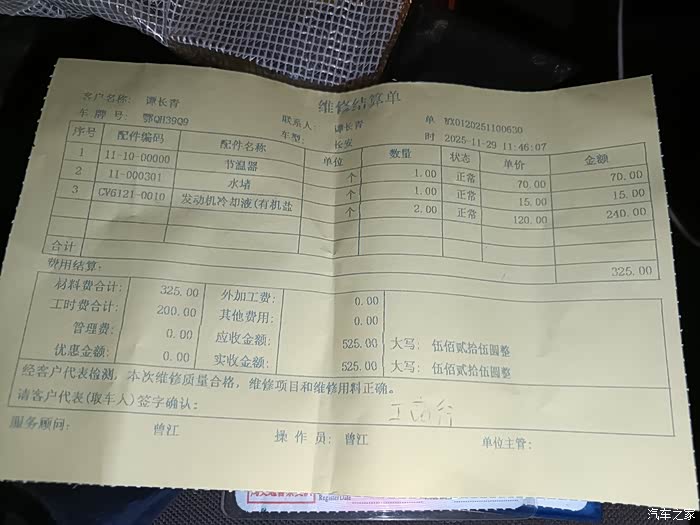 维修结算单
客户名称: 谭长青 联系人 谭长青 单 WX0120251100630
车牌号: 鄂QH39Q9 车型: 长安 时 2025-11-29 11:46:07
序号 配件编码 配件名称 单位 数量 状态 单价 金额
1 11-10-00000 节温器 个 1.00 正常 70.00 70.00
2 11-000301 水堵 个 1.00 正常 15.00 15.00
3 CV6121-0010 发动机冷却液(有机盐 个 2.00 正常 120.00 240.00
合计 325.00
费用结算:
材料费合计: 325.00 外加工费: 0.00
工时费合计: 200.00 其他费用: 0.00
管理费: 0.00 应收金额: 525.00 大写: 伍佰贰拾伍圆整
优惠金额: 0.00 实收金额: 525.00 大写: 伍佰贰拾伍圆整
经客户代表检测,本次维修质量合格,维修项目和维修用料正确。
请客户代表(取车人)签字确认:
服务顾问: 曾江 操作员: 曾江 单位主管:
Register Date
汽车之家